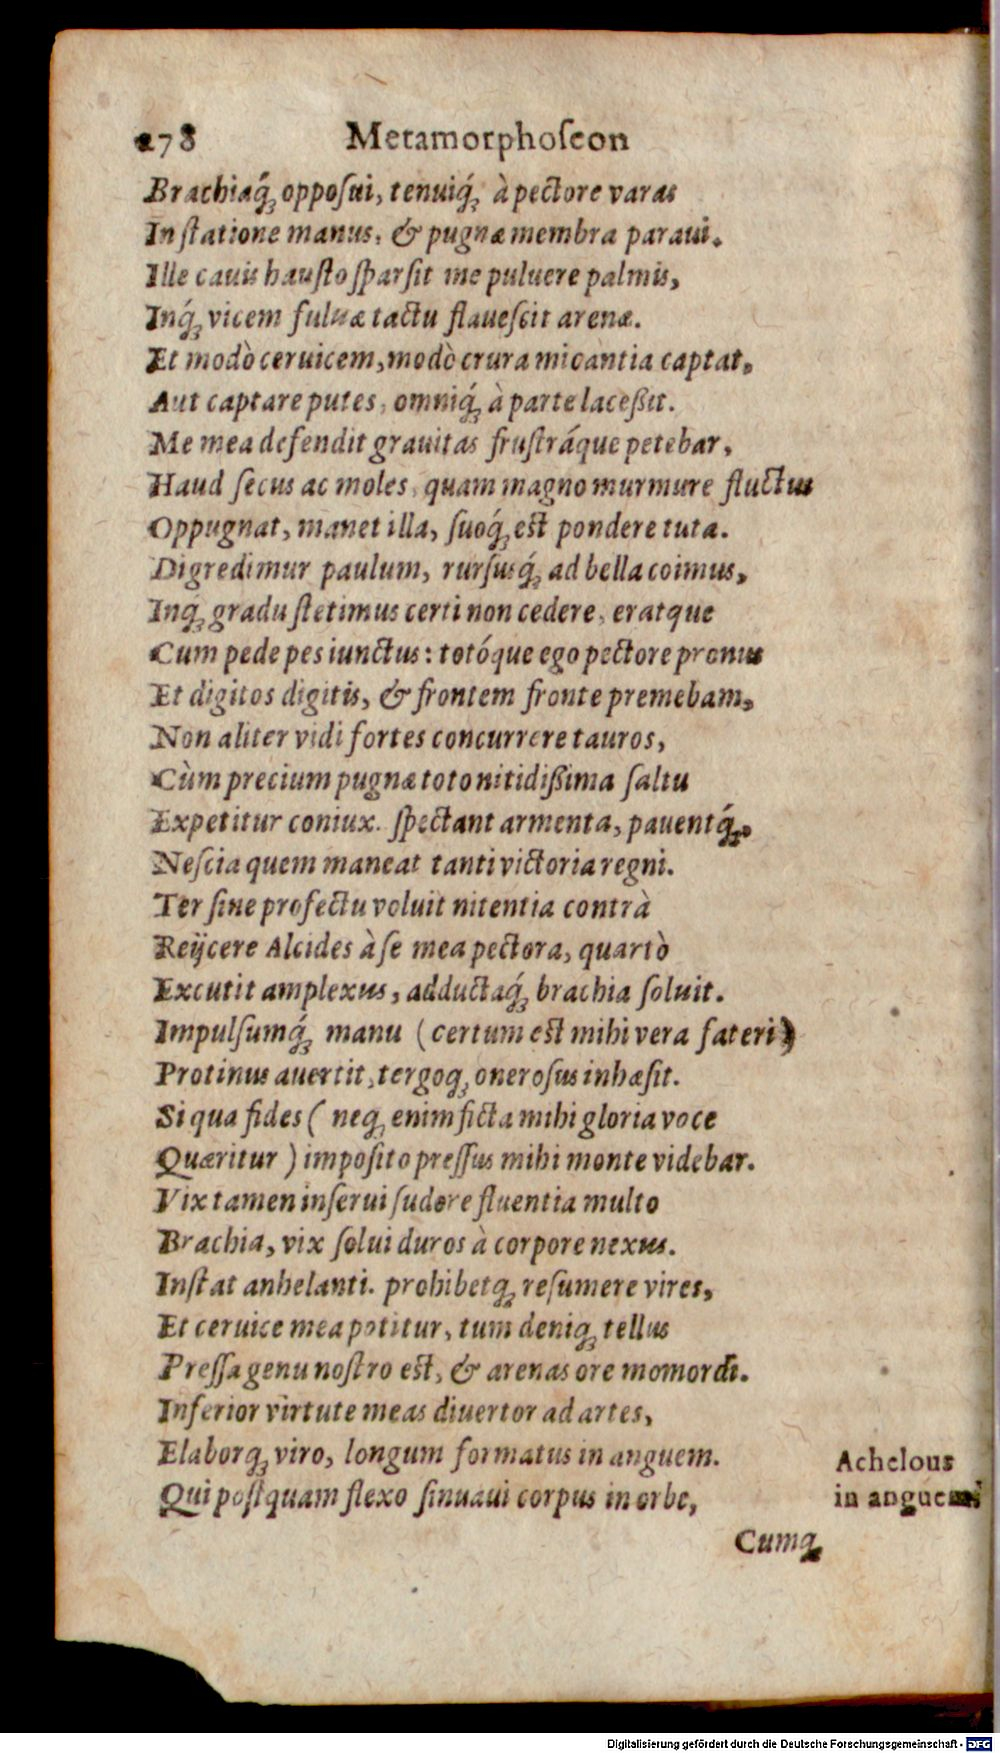 278 Metamorphoſeon
Brachiaq́ꝫ oppoſui, tenuiq́ꝫ à pectore varas
In ſtatione manus, & pugnæ membra paraui.
Ille cauis hauſto ſparſit me puluere palmis,
Inq́ꝫ vicem fuluæ tactu flaueſcit arenæ.
Et modò ceruicem, modò crura micantia captat,
Aut captare putes, omniq́ꝫ à parte laceßit.
Me mea defendit grauitas fruſtráque petebar,
Haud ſecus ac moles, quam magno murmure fluctus
Oppugnat, manet illa, ſuoq́ꝫ eſt pondere tuta.
Digredimur paulum, rurſusq́ꝫ ad bella coimus,
Inqꝫ gradu ſtetimus certi non cedere, eratque
Cum pede pes iunctus: totóque ego pectore pronus
Et digitos digitis, & frontem fronte premebam,
Non aliter vidi fortes concurrere tauros,
Cùm precium pugnæ toto nitidißima ſaltu
Expetitur coniux. ſpectant armenta, pauentq́ꝫ,
Neſcia quem maneat tanti victoria regni.
Ter ſine profectu voluit nitentia contrà
Reijcere Alcides à ſe mea pectora, quartò
Excutit amplexus, adductaq́ꝫ brachia ſoluit.
Impulſumq́ꝫ manu (certum eſt mihi vera fateri)
Protinus auertit, tergoqꝫ oneroſus inhæſit.
Si qua fides ( neqꝫ enim ficta mihi gloria voce
Quæritur ) impoſito preſſus mihi monte videbar.
Vix tamen inſerui ſudore fluentia multo
Brachia, vix ſolui duros à corpore nexus.
Inſtat anhelanti. prohibetqꝫ reſumere vires,
Et ceruice mea potitur, tum deniqꝫ tellus
Preſſa genu noſtro eſt, & arenas ore momordi.
Inferior virtute meas diuertor ad artes,
Elaborqꝫ viro, longum formatus in anguem.
Qui poſtquam flexo ſinuaui corpus in orbe,
Achelous
in anguem
Cumqꝫ
Digitalisierung gefördert durch die Deutsche Forschungsgemeinschaft - DFG